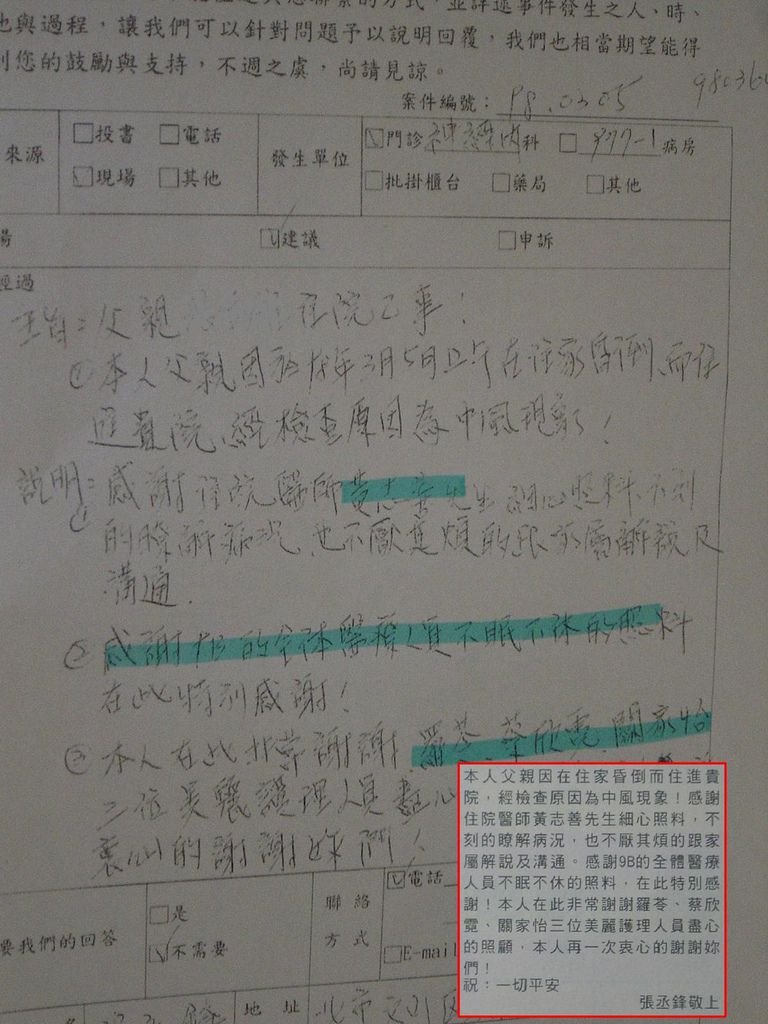 並詳述事件發生之人、時、
與過程，讓我們可以針對問題予以說明回覆，我們也相當期望能得
您的鼓勵與支持，不週之處，尚請見諒。
案件編號：98.0305
來源 □投書 □電話 發生單位 ☑門診神經內科 □ 病房
☑現場 □其他 □批掛櫃台 □藥局 □其他
☑建議 □申訴
經過
主旨：父親 住院乙事！
①本人父親因於98年3月5日上午在住家昏倒、而住
進貴院、經檢查原因為中風現象！
說明：感謝住院醫師黃志善先生細心照料、不刻
的瞭解病況、也不厭其煩的跟家屬解說及
溝通.
②感謝9B的全体醫療人員不眠不休的照料
在此特別感謝！
③本人在此非常謝謝羅苓、蔡欣霓、關家怡
三位美麗護理人員盡心
衷心的謝謝妳們！
要我們的回答 □是 聯絡方式 ☑電話
☑不需要 □E-mail
地址
本人父親因在住家昏倒而住進貴
院，經檢查原因為中風現象！感謝
住院醫師黃志善先生細心照料，不
刻的瞭解病況，也不厭其煩的跟家
屬解說及溝通。感謝9B的全體醫療
人員不眠不休的照料，在此特別感
謝！本人在此非常謝謝羅苓、蔡欣
霓、關家怡三位美麗護理人員盡心
的照顧，本人再一次衷心的謝謝妳
們！
祝：一切平安
張丞鋒敬上